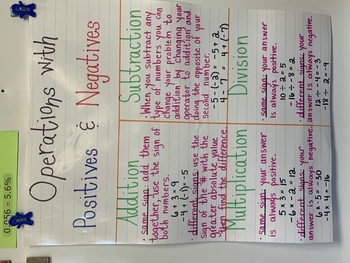 0.056 = 5.6%
Operations with
Positives & Negatives
Addition
· same sign: add them
together, use the sign of
both numbers.
6 + 3 = 9
-1 + (-4) = -5
· different signs: use the
sign of the # with the
greater absolute value
then find the difference.
Subtraction
· When you subtract any
type of numbers you can
change your problem to
addition by changing your
operator to addition and
doing the opposite of your
second number.
-5 - (-2) = -5 + 2
4 - 7 = 4 + (-7)
Multiplication
· same sign: your answer
is always positive.
5 x 3 = 15
-6 x -2 = 12
· different signs: your
answer is always negative.
6 x -5 = -30
-4 x 4 = -16
Division
· same sign: your answer
is always positive.
10 ÷ 2 = 5
-16 ÷ -8 = 2
· different signs: your
answer is always negative.
12 ÷ -4 = -3
-18 ÷ 2 = -9